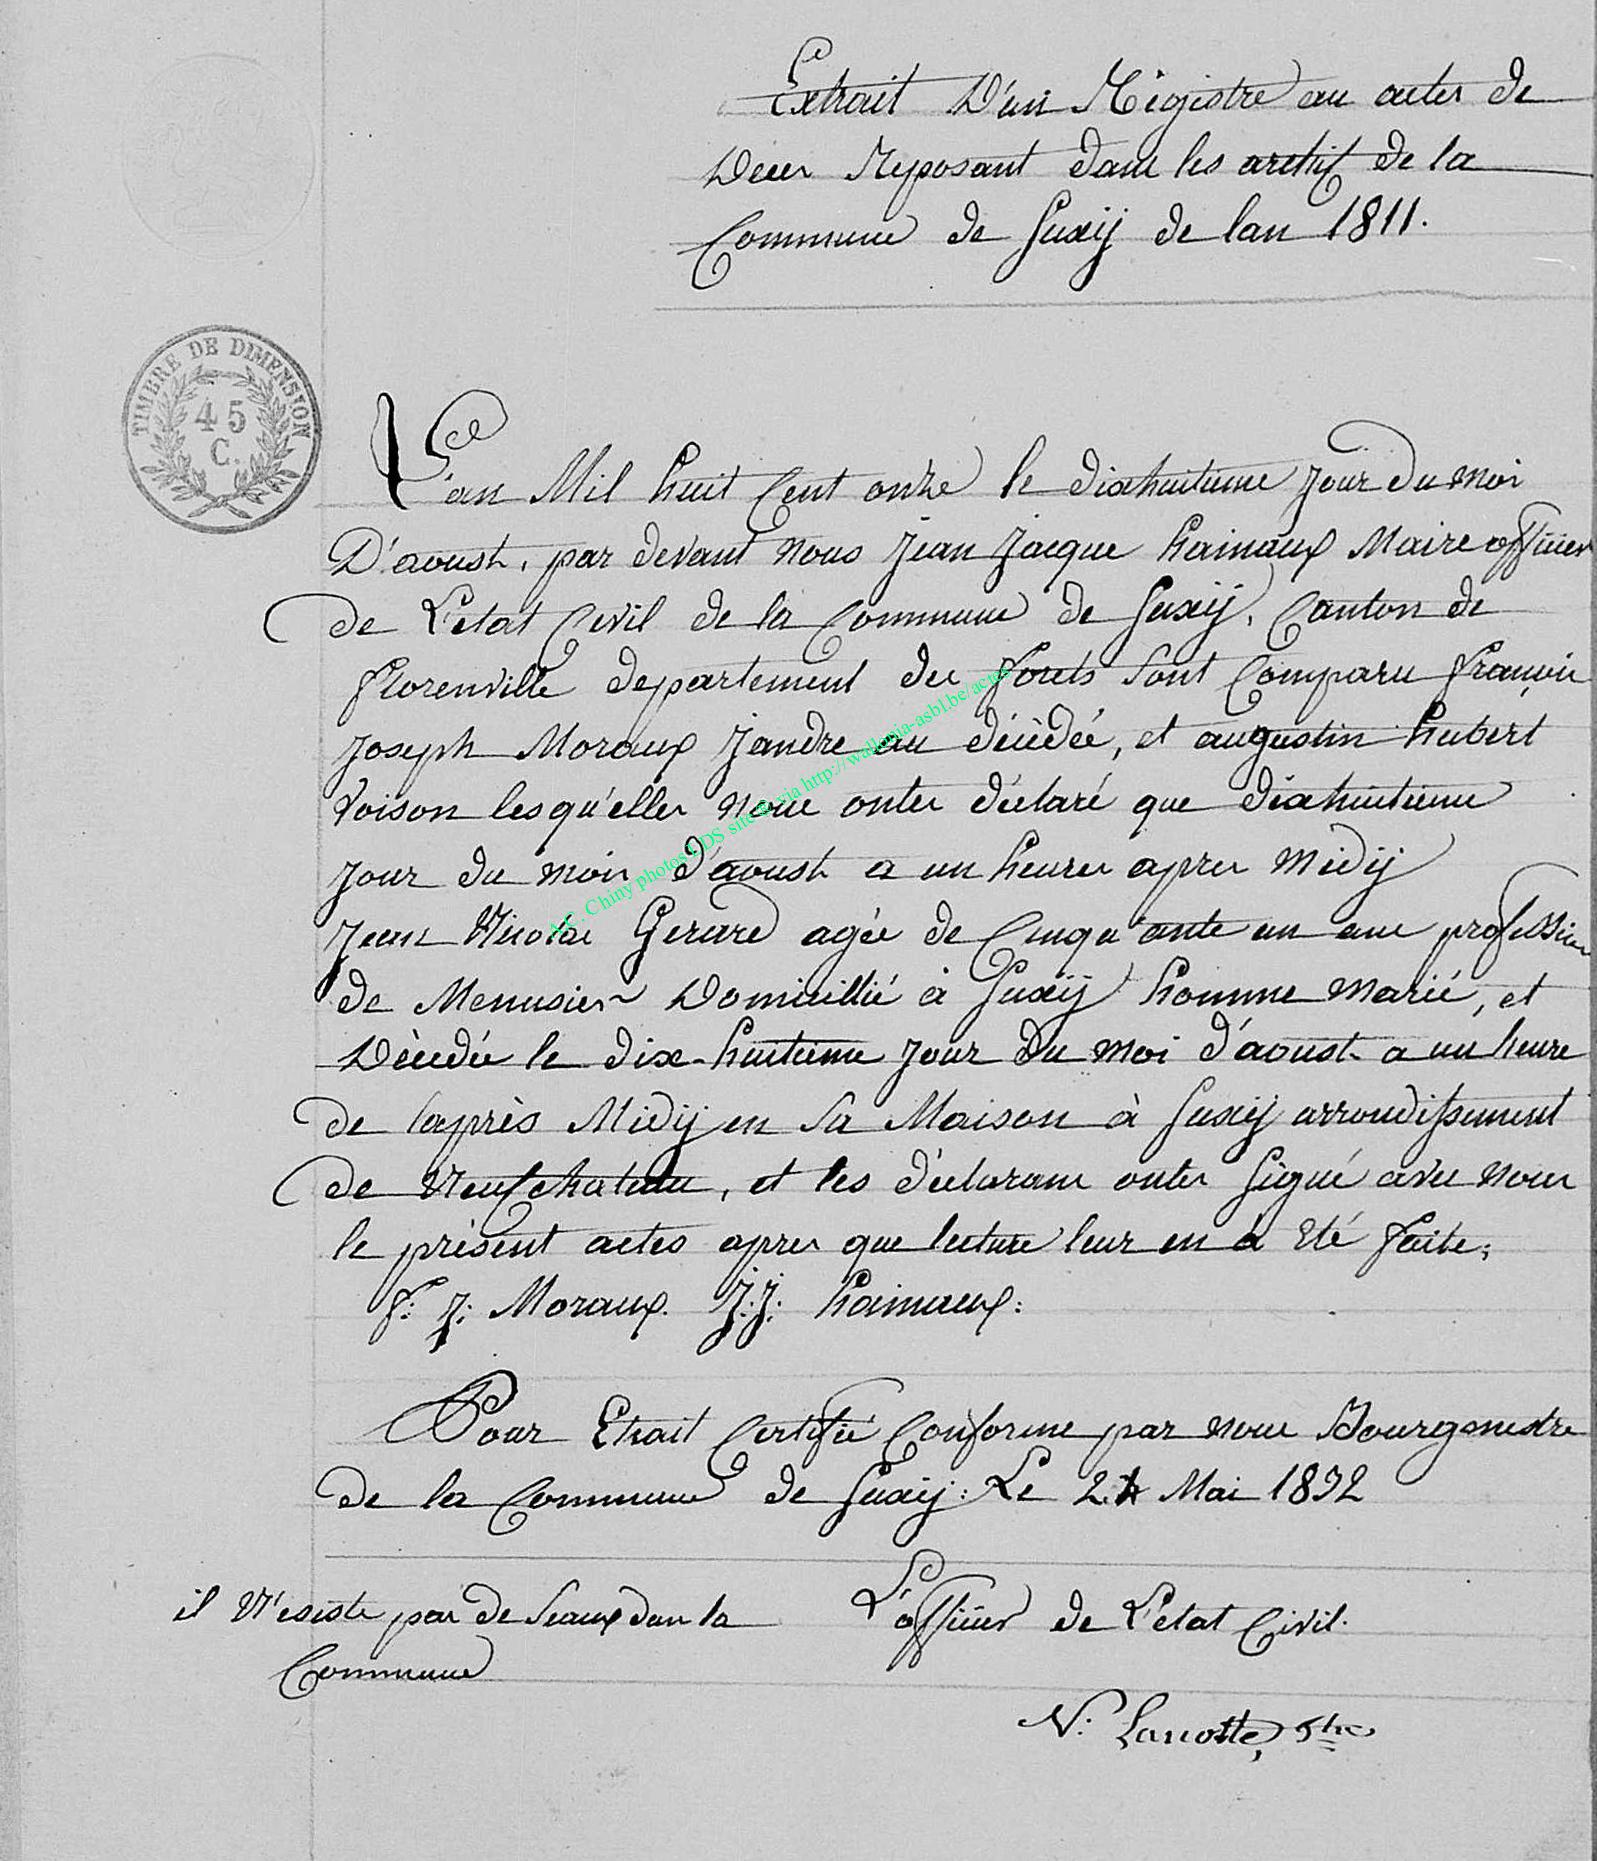 Extrait D'un Régistre au actes de
Deces Reposant dans les archif de la
Commune de Suxÿ de lan 1811.
TIMBRE DE DIMENSION
45
C.
L'an Mil huit Cent onze le dixhuitieme Jour du moi
D'aoust, par devant nous Jean Jacque hainaux Maire officier
de L'etat Civil de la Commune de Suxÿ, Canton de
florenville departement des forets sont Comparu françois
Joseph Moraux Jandre au décédée, et augustin hubert
Voison lesqu'elles nous ontes déclaré que dixhuitieme
Jour du mois d'aoust a un heures apres Midÿ
Jean Nicolas Gerard agée de Cinqu'ante un ans profession
de Menusier Domicillié à Suxÿ homme marié, et
Décédée le dix-huitieme Jour du moi d'aoust a un heure
de l'après Midÿ en sa Maison à Suxÿ arrondissement
de Neufchateau, et les déclarans ontes signé avec nous
le présent actes apres que lecture leur en à Eté faite;
f: J: Moraux. J:J: hainaux:
Pour Etrait Certifié Conforme par nous Bourgmestre
de la Commune de Suxÿ: Le 24 Mai 1832
il N'existe pas de Seaux dans la
Commune
L'officier de L'etat Civil.
N: Lanotte,
A.E. Chiny photos LDS site & via http://wallonia-asbl.be/actes